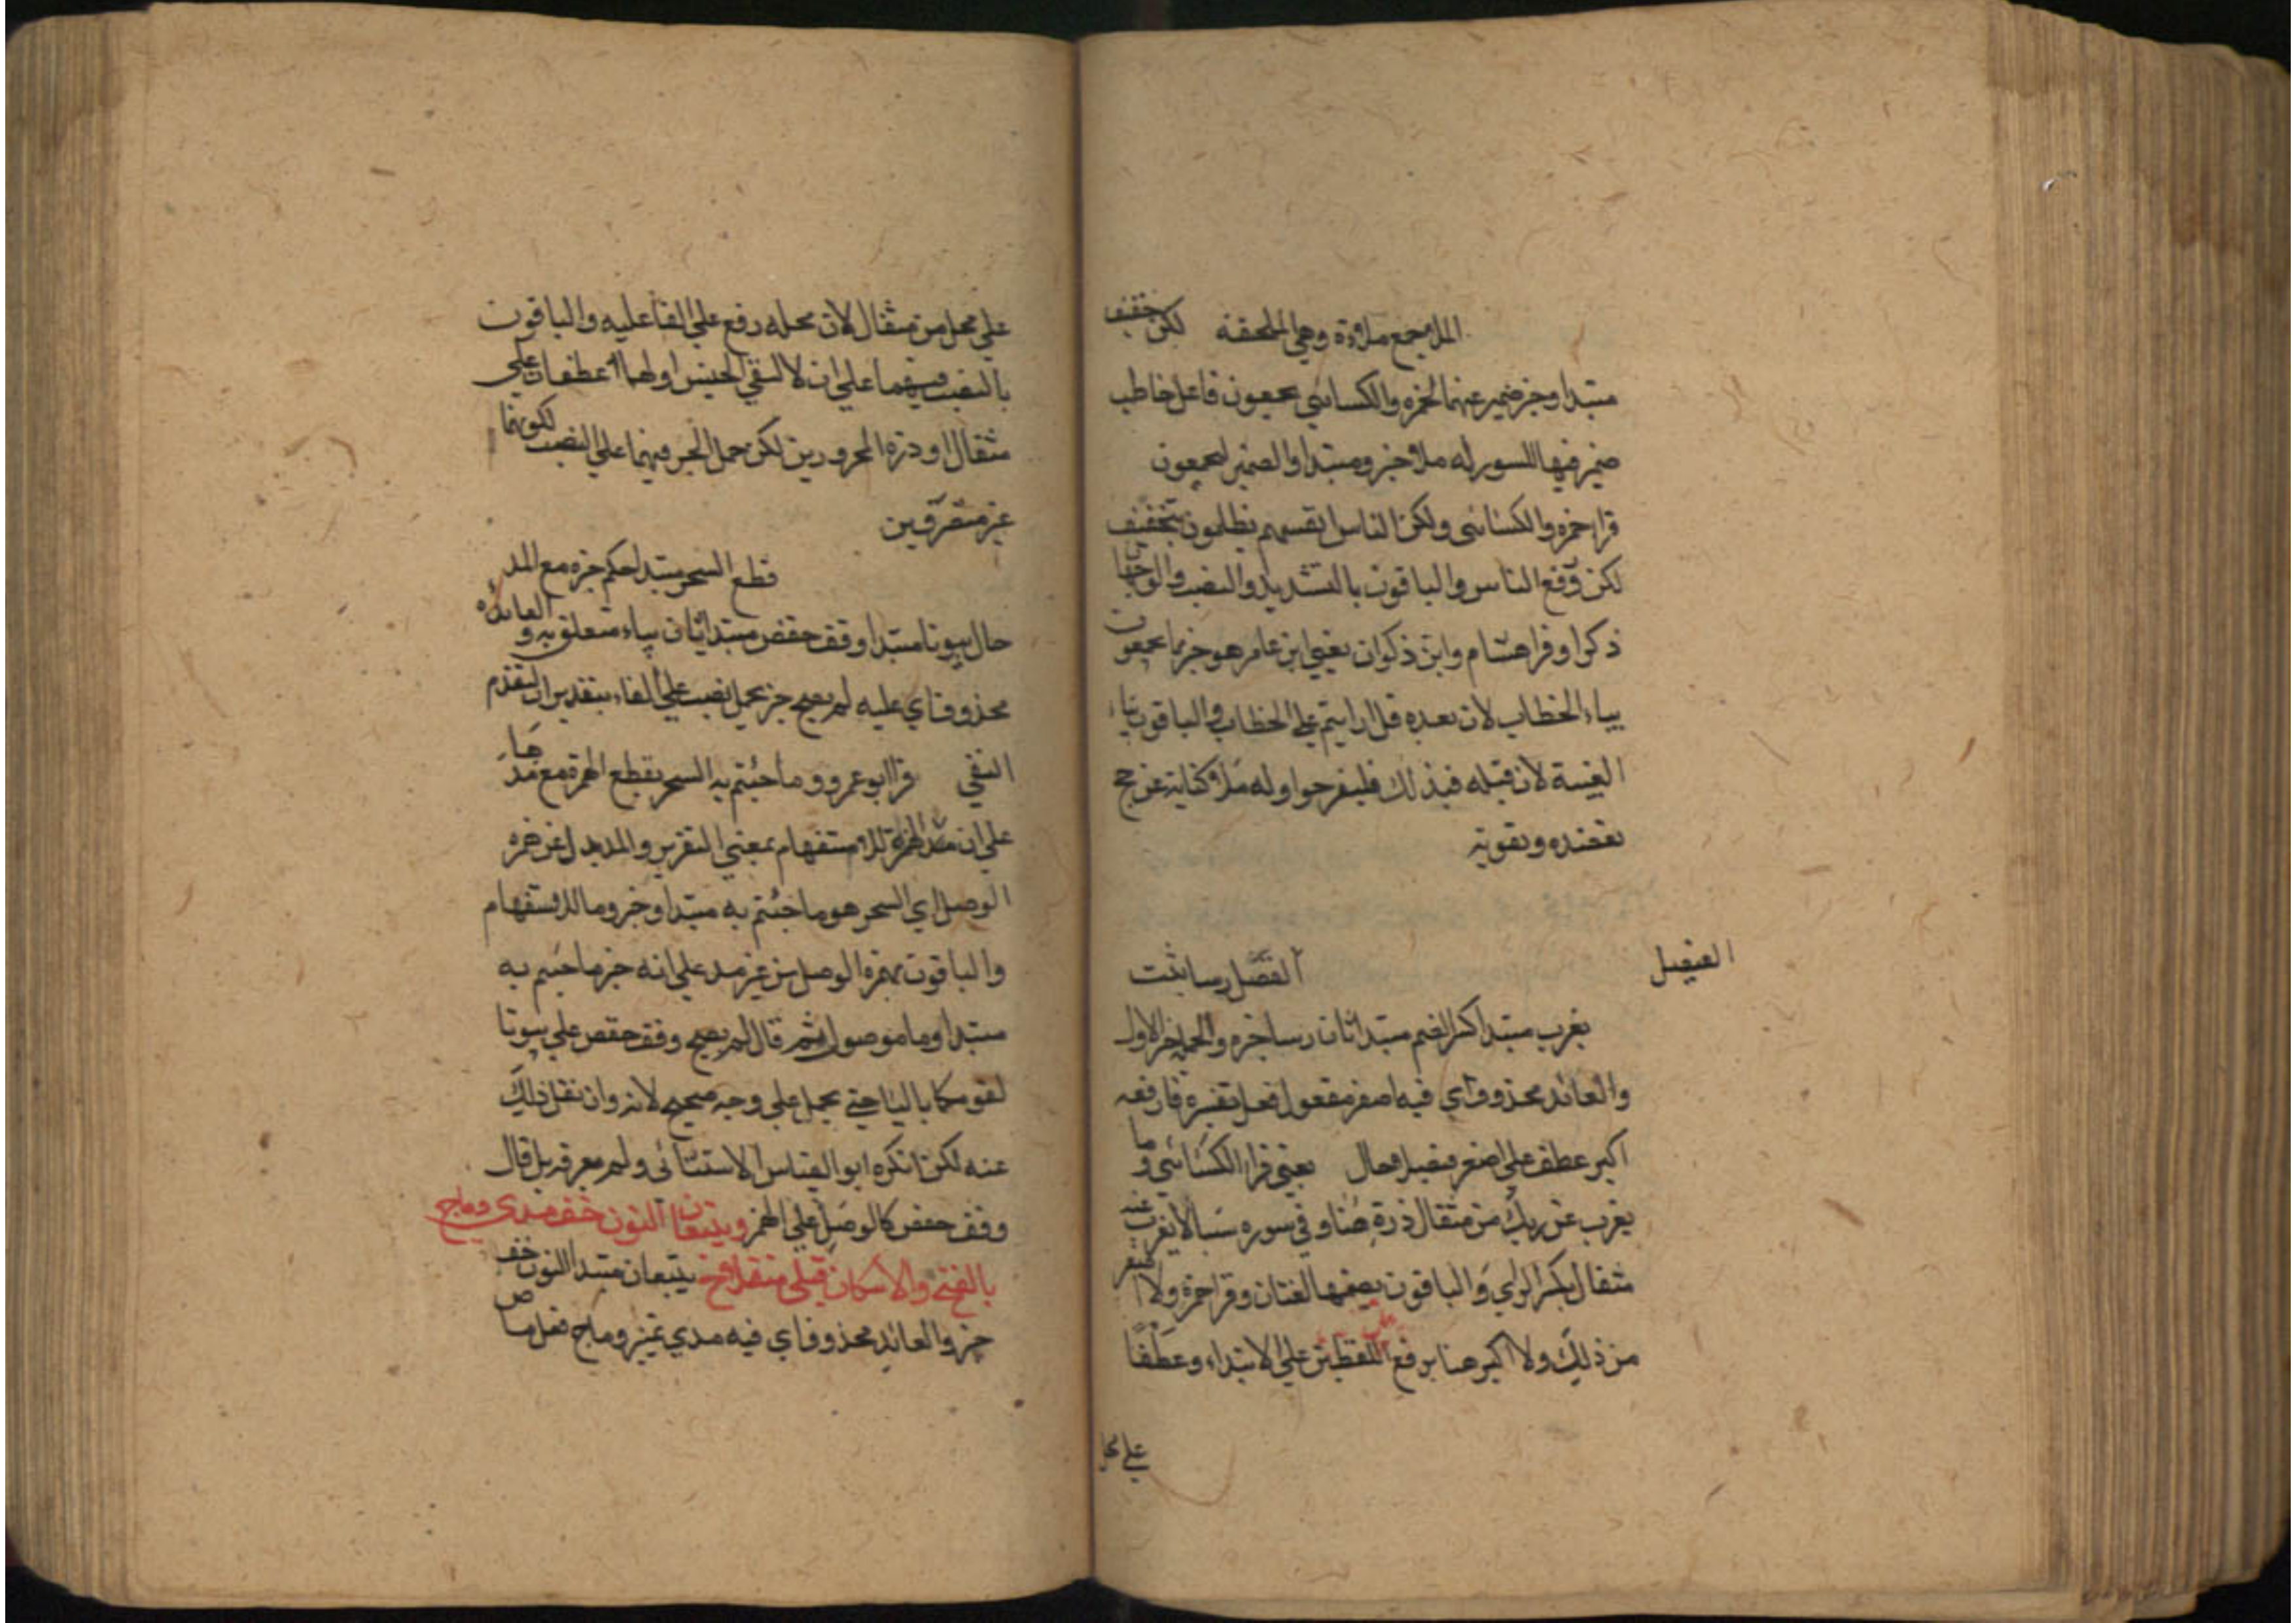 الملا جمع ملاءة وهي الملحفة لكن خفيف
مبتدا وخبر ضمير عنهما لحمزه والكسائي يجمعون فاعل خاطب
ضمير فيها للسور له ملا خبر ومبتدا والضمير ليجمعون
قرا حمزه والكسائى ولكن الناس انفسهم يظلمون بتخفيف
لكن ورفع الناس والباقون بالتشديد والنصب والوجها
ذكرا وقرا هشام وابن ذكوان يعني ابن عامر هو خير مما يجمعون
بياء الخطاب لان بعده قل ارايتم على الخطاب والباقون بياء
الغيبة لان قبله فبذلك فليفرحوا وله ملا كناية عن حج
تعضده وتقويه
الفيصل
الفصل رسا بثت
يعزب مبتدا كسر الضم مبتدا ثان رسا خبره والجملة خبر الاول
والعائد محذوف اي فيه اصغر مفعول فعل يفسره فارفعه
اكبر عطف على اصغر فيصلا حال يعني قرا الكسائي وما
يعزب عن ربك من مثقال ذرة هنا وفي سوره سبا لا يعزب عنه
مثقال بكسر الزاي والباقون بضمها لغتان وقرا حمزة ولا اصغر
من ذلك ولا اكبر هنا برفع اللفظين على الابتداء وعطفا
على محل
على محل من مثقال لان محله رفع على الفاعليه والباقون
بالنصب فيهما على ان لا لنفي الجنس اولهما عطفان على
مثقال او ذرة المجرورين لكن حمل الجر فيهما على النصب لكونهما
غير منصرفين
قطع السحر مبتدا حكم خبره مع المد
حال تبوئا مبتدا وقف حفص مبتدا ثان بياء متعلق به والعائد
محذوف اي عليه لم يصح خبر محمل نصب على الفاء بتقدير ان لتقدم
النفي قرا ابو عمرو وما جئتم به السحر بقطع الهمزة مع مدها
على ان مد الهمزة للاستفهام بمعني التقرير والمد بدل عن همزه
الوصل اي السحر هو ما جئتم به مبتدا وخبر وما للاستفهام
والباقون بهمزة الوصل من غير مد على انه خبر ما جئتم به
مبتدا وما موصول ثم قال لم يصح وقف حفص على تبوئا
لقومكما بالياء حتى يحمل على وجه صحيح لانه وان نقل ذلك
عنه لكن انكره ابو العباس الاشنانى ولم يعرفه بل قال
وقف حفص كالوصل على الهمز وتتبعان النون خف مدى وماج
بالفتح والاسكان قبل مثقلا تتبعان مبتدا النون خف
خبر والعائد محذوف اي فيه مدي تميز وماج فعل ماض